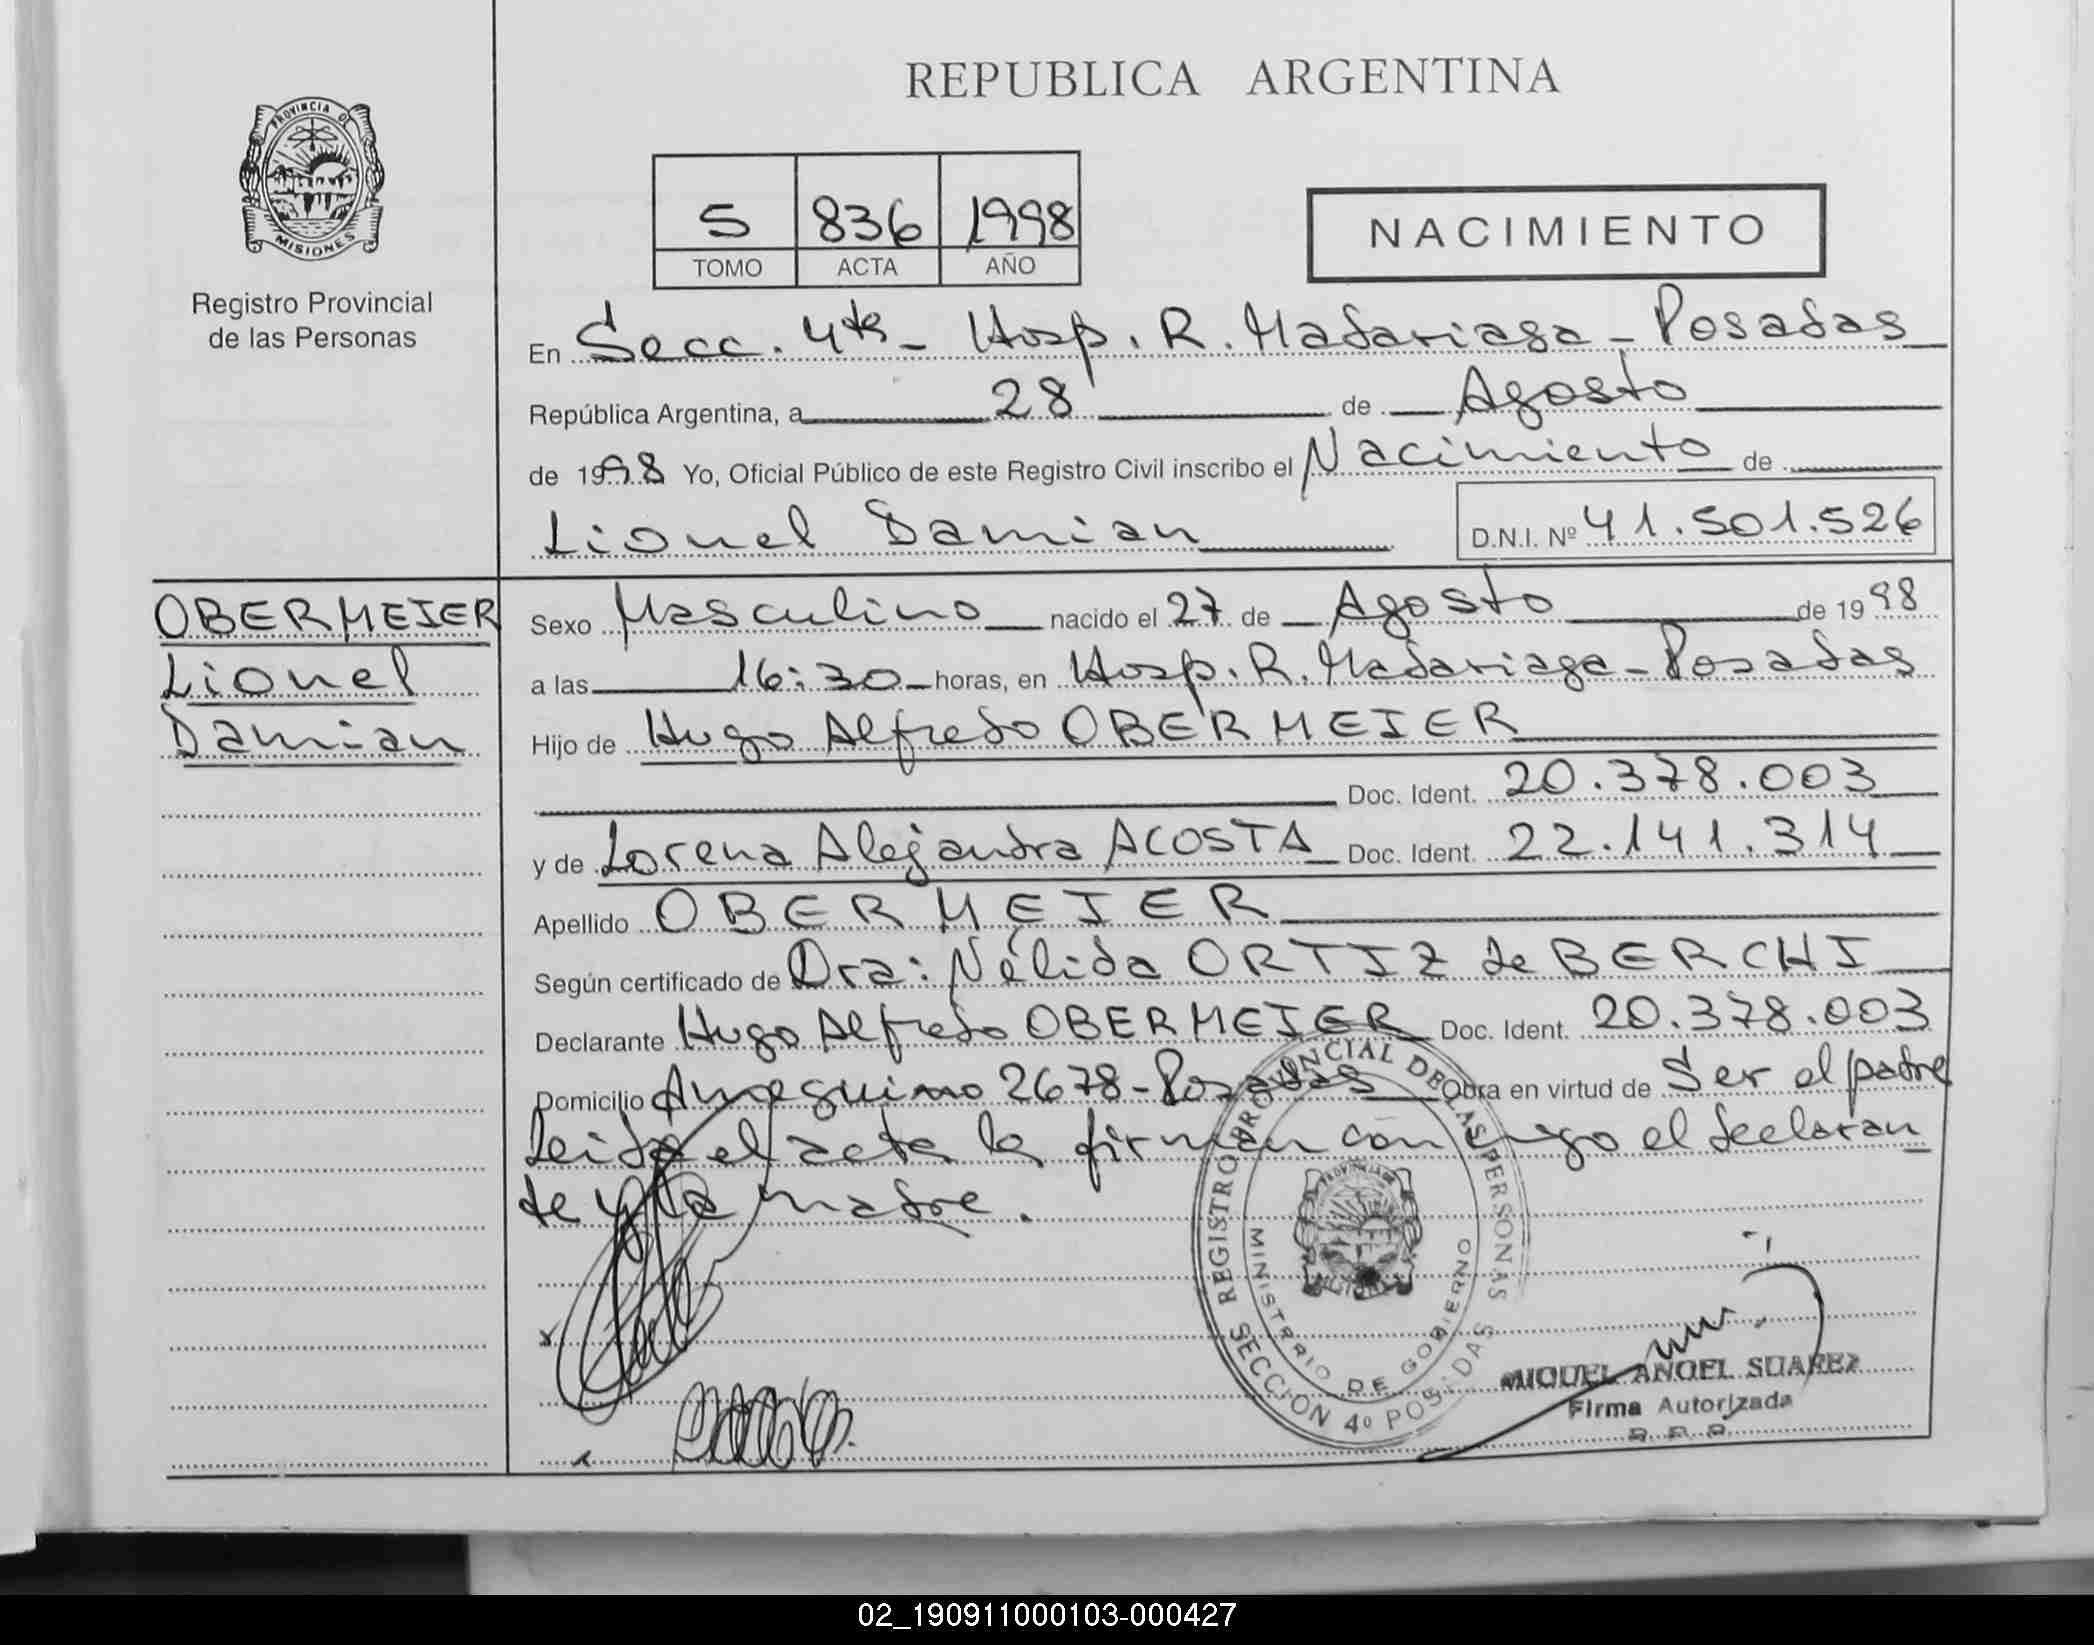 REPUBLICA ARGENTINA
PROVINCIA DE
MISIONES
Registro Provincial
de las Personas
5 836 1998
TOMO ACTA AÑO
NACIMIENTO
En Secc. 4ta - Hosp. R. Madariaga - Posadas
República Argentina, a 28 de Agosto
de 1998 Yo, Oficial Público de este Registro Civil inscribo el Nacimiento de
Lionel Damian D.N.I. Nº 41.501.526
OBERMEIER
Lionel
Damian
Sexo Masculino nacido el 27 de Agosto de 1998
a las 16:30 horas, en Hosp. R. Madariaga - Posadas
Hijo de Hugo Alfredo OBERMEIER
Doc. Ident. 20.378.003
y de Lorena Alejandra ACOSTA Doc. Ident. 22.141.314
Apellido OBERMEIER
Según certificado de Dra: Nélida ORTIZ de BERCHI
Declarante Hugo Alfredo OBERMEIER Doc. Ident. 20.378.003
Domicilio 2678 - Posadas Obra en virtud de Ser el padre
Leida el acta la firman con migo el declaran
te y la madre.
REGISTRO PROVINCIAL DE LAS PERSONAS
MINISTERIO DE GOBIERNO
SECCION 4º POSADAS
MIGUEL ANGEL SUAREZ
Firma Autorizada
02_190911000103-000427